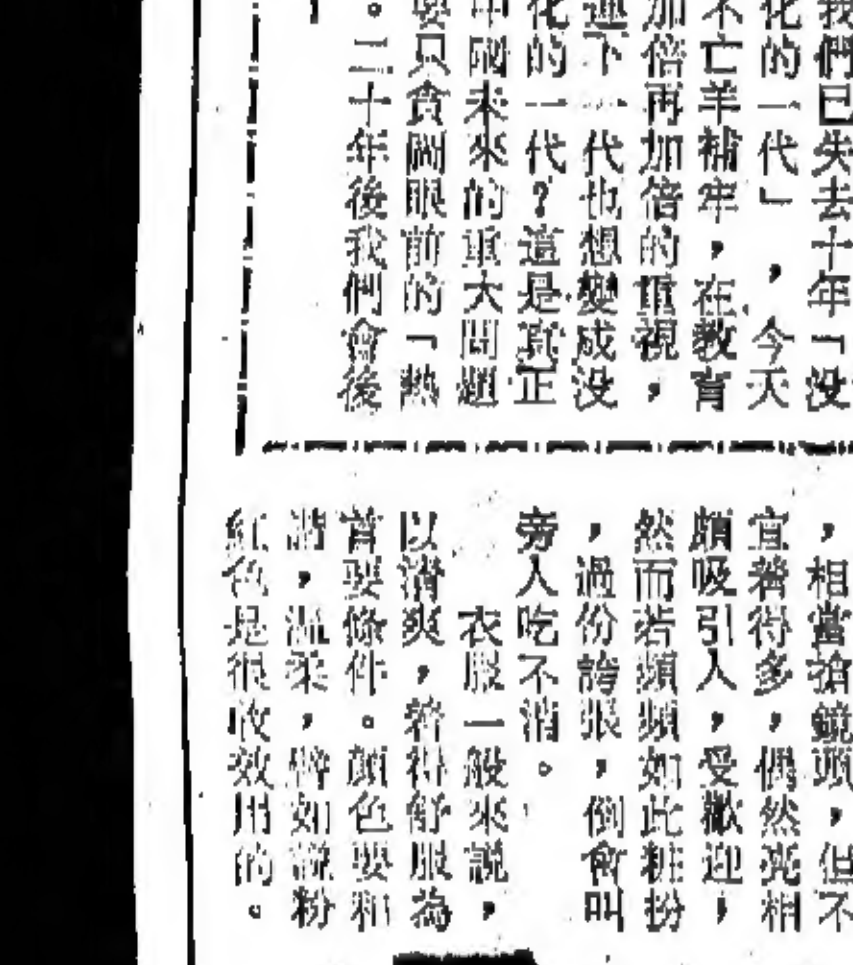 我們已失去十年「没
化的一代」，今天
不亡羊補牢，在教育
加倍再加倍的重視，
連下一代也想變成没
化的一代？這是真正
中國未來的重大問題
要只貪圖眼前的「熱
。二十年後我們會後
，相當搶鏡頭，但不
宜著得多，偶然亮相
頗吸引人，受歡迎，
然而若頻頻如此粧扮
，過份誇張，倒會叫
旁人吃不消。
衣服一般來説，
以清爽，著得舒服為
首要條件。顏色要和
諧，溫柔，譬如説粉
紅色是很收效用的。